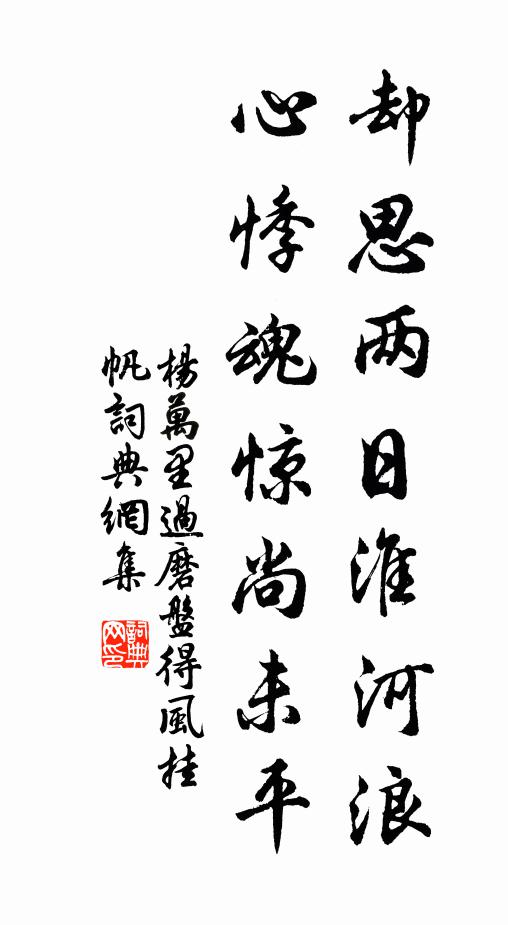 却思两日淮河浪
心悸魂惊尚未平
楊萬里過磨盤得風挂
帆詞典網集
詞典
网印